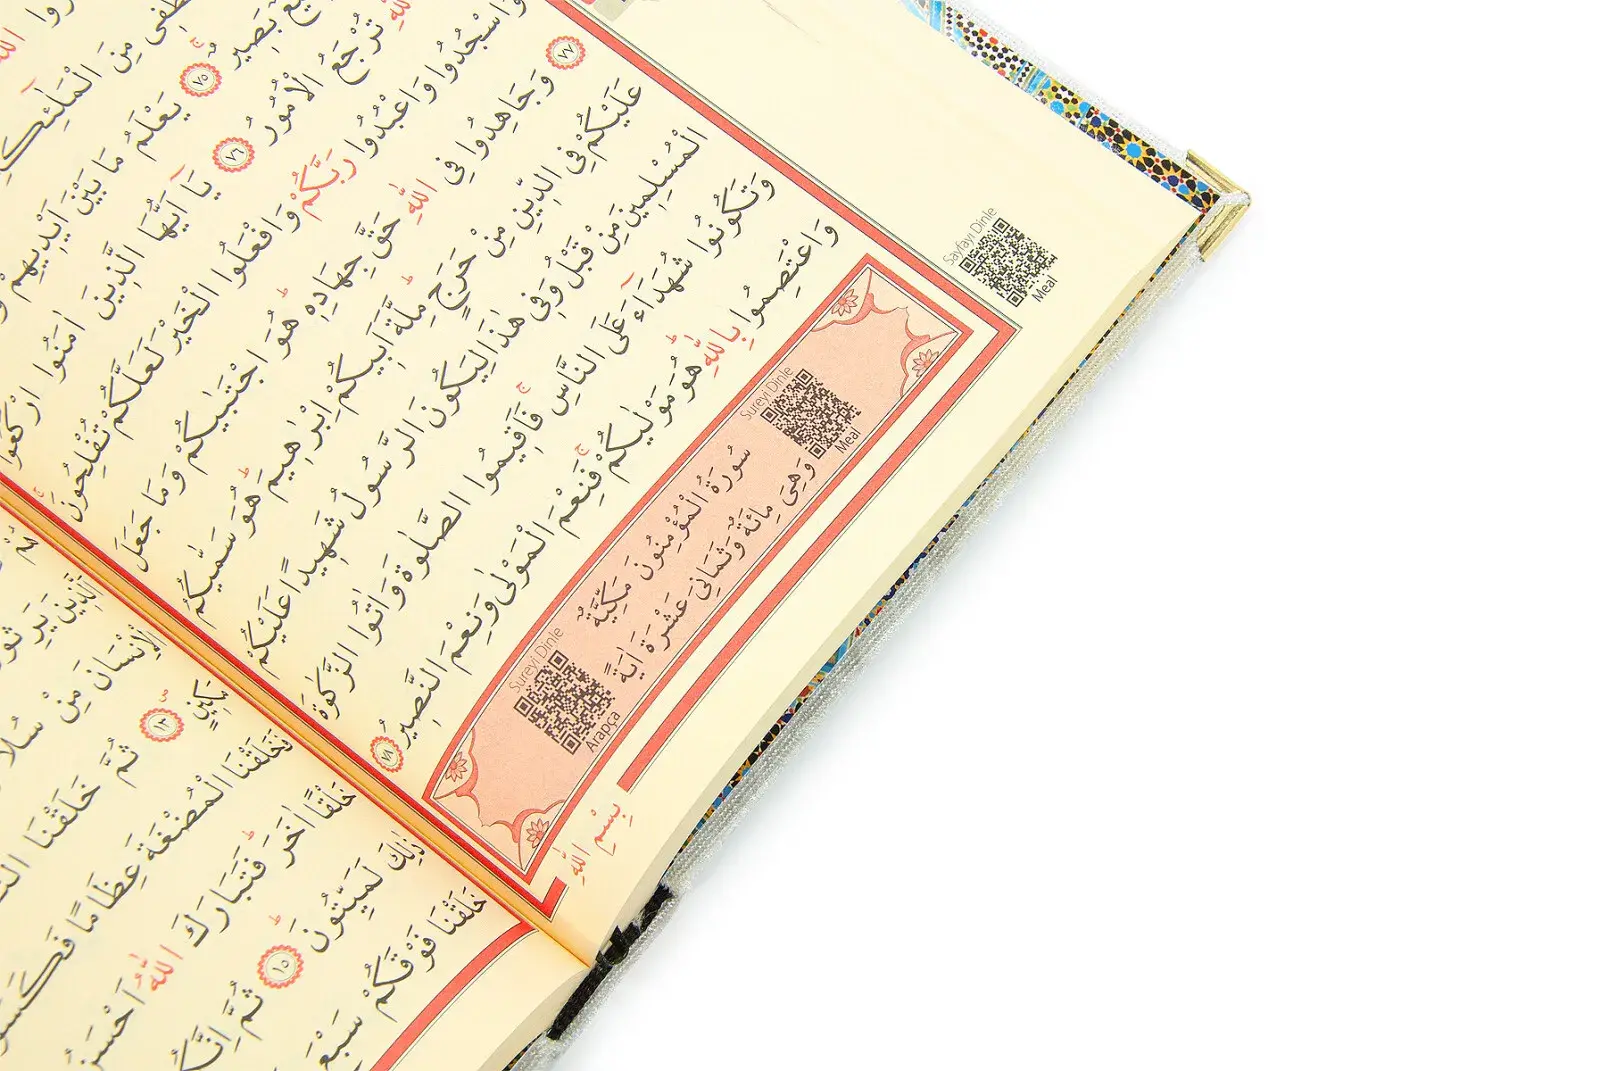 مِنَ الْمَلٰٓئِكَ
بَصِيرٌ ٧٥ يَعْلَمُ مَا بَيْنَ اَيْدِيهِمْ
اللّٰهِ تُرْجَعُ الْاُمُورُ ٧٦ يَٓا اَيُّهَا الَّذِينَ اٰمَنُوا ارْكَعُوا
وَاسْجُدُوا وَاعْبُدُوا رَبَّكُمْ وَافْعَلُوا الْخَيْرَ لَعَلَّكُمْ تُفْلِحُونَ
٧٧ وَجَاهِدُوا فِى اللّٰهِ حَقَّ جِهَادِهِ هُوَ اجْتَبٰيكُمْ وَمَا جَعَلَ
عَلَيْكُمْ فِى الدِّينِ مِنْ حَرَجٍ مِلَّةَ اَبِيكُمْ اِبْرٰهِيمَ هُوَ سَمّٰيكُمُ
الْمُسْلِمِينَ مِنْ قَبْلُ وَفِى هٰذَا لِيَكُونَ الرَّسُولُ شَهِيدًا عَلَيْكُمْ
وَتَكُونُوا شُهَدَٓاءَ عَلَى النَّاسِ فَاَقِيمُوا الصَّلٰوةَ وَاٰتُوا الزَّكٰوةَ
وَاعْتَصِمُوا بِاللّٰهِ هُوَ مَوْلٰيكُمْ فَنِعْمَ الْمَوْلٰى وَنِعْمَ النَّصِيرُ ٧٨
Sayfayı Dinle
Meal
Sureyi Dinle
Meal
سُورَةُ الْمُؤْمِنُونَ مَكِّيَّةٌ
وَهِىَ مِائَةٌ وَثَمَانِىَ عَشْرَةَ اٰيَةً
Sureyi Dinle
Arapça
بِسْمِ اللّٰهِ
الْاِنْسَانَ مِنْ سُلَا
مَكِينٍ ١٣ ثُمَّ خَلَقْنَا
فَخَلَقْنَا الْمُضْغَةَ عِظَامًا فَكَسَوْ
خَلْقًا اٰخَرَ فَتَبَارَكَ اللّٰهُ اَحْسَنُ
ذٰلِكَ لَمَيِّتُونَ ١٥ ثُمَّ اِنَّكُمْ
خَلَقْنَا فَوْقَكُمْ سَبْعَ